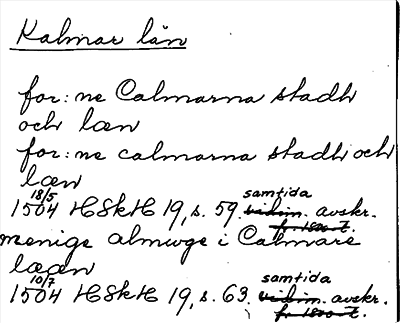 Kalmar län
for: ne Calmarna stadh
och læn
for: ne calmarna stadh och
læn
18/5
1504 HSkH 19, s. 59. samtida vidim. avskr.
fr. 1800-t.
menige almwge i Calmare
læen
10/7
1504 HSkH 19, s. 63. samtida vidim. avskr.
fr. 1800-t.